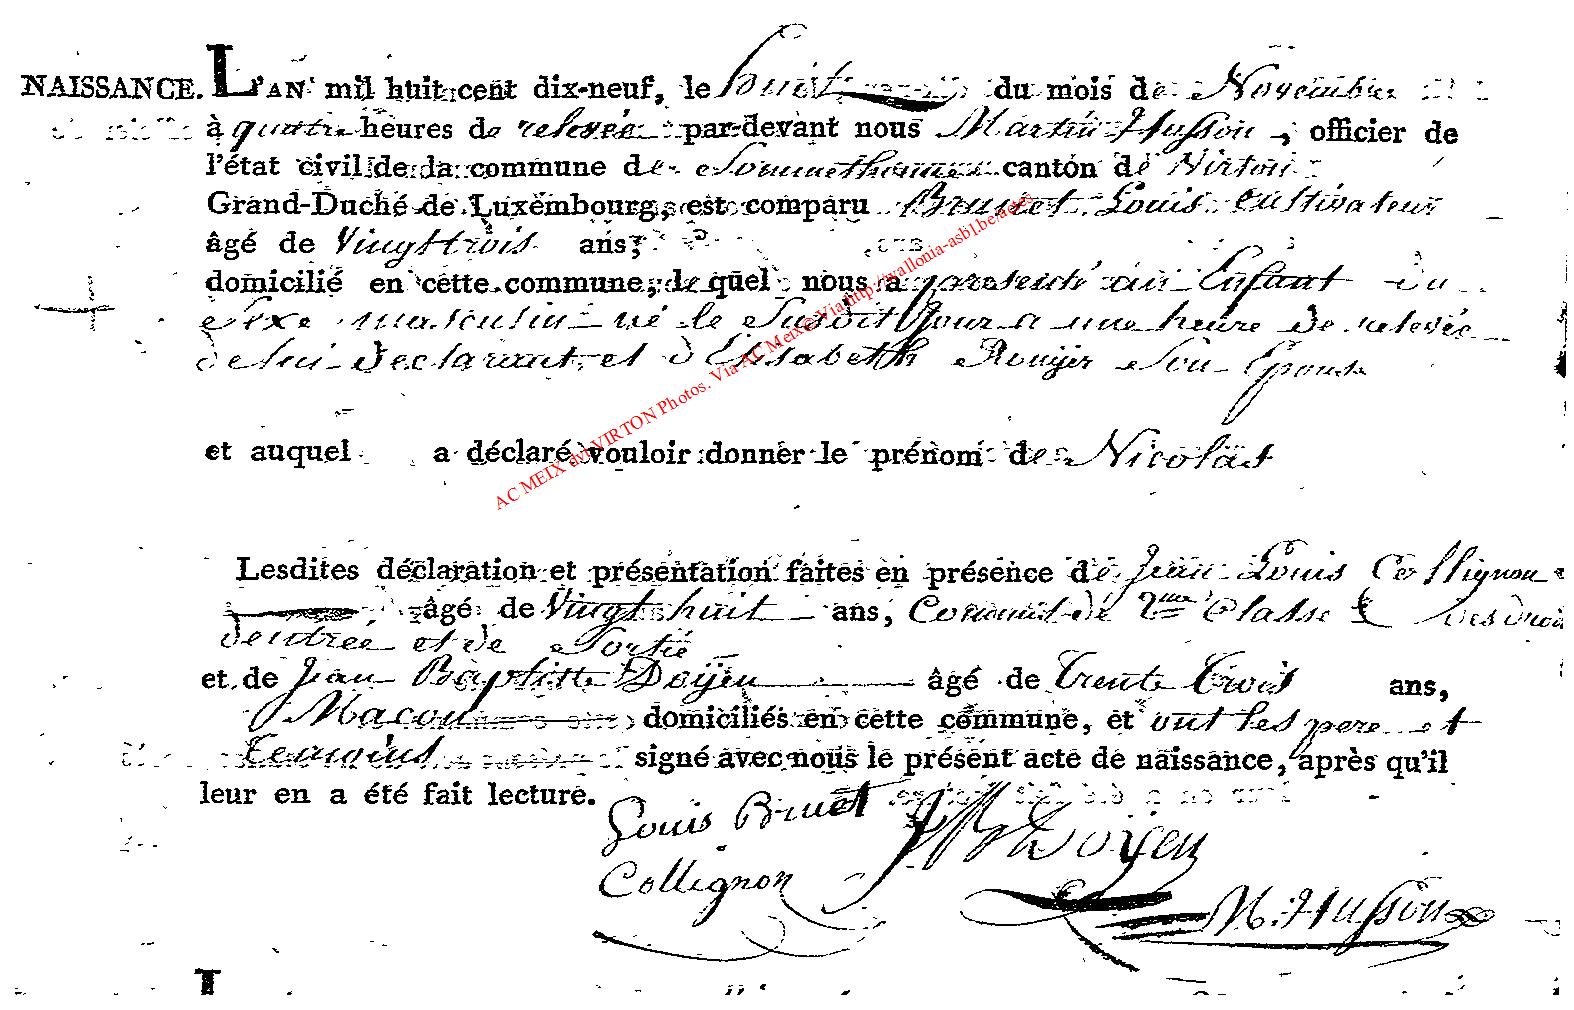 NAISSANCE. L'AN mil huit cent dix-neuf, le huit du mois de Novembre
à quatre heures de relevée par-devant nous Martin Husson, officier de
l'état civil de la commune de Sommethonne canton de Virton
Grand-Duché de Luxembourg, est comparu Brunet Louis cultivateur
âgé de Vingt trois ans,
domicilié en cette commune, lequel nous a presenté un Enfant du
Sexe masculin né le Susdit jour a une heure de relevée
de lui declarant et d'Elisabeth Rouyer Son Epouse
et auquel a déclaré vouloir donner le prénom de Nicolas
AC MEIX dvt VIRTON Photos. Via AC Meix© Via http://wallonia-asbl.be/actes
Lesdites déclaration et présentation faites en présence de Jean Louis Collignon
âgé de Vingt huit ans, Commis de 2me Classe des droits
dentrée et de Sortie
et de Jean Baptiste Doyen âgé de trente trois ans,
Macon domiciliés en cette commune, et ont les pere et
temoins signé avec nous le présent acte de naissance, après qu'il
leur en a été fait lecture.
Louis Brunet JB Doyen
Collignon
M. Husson